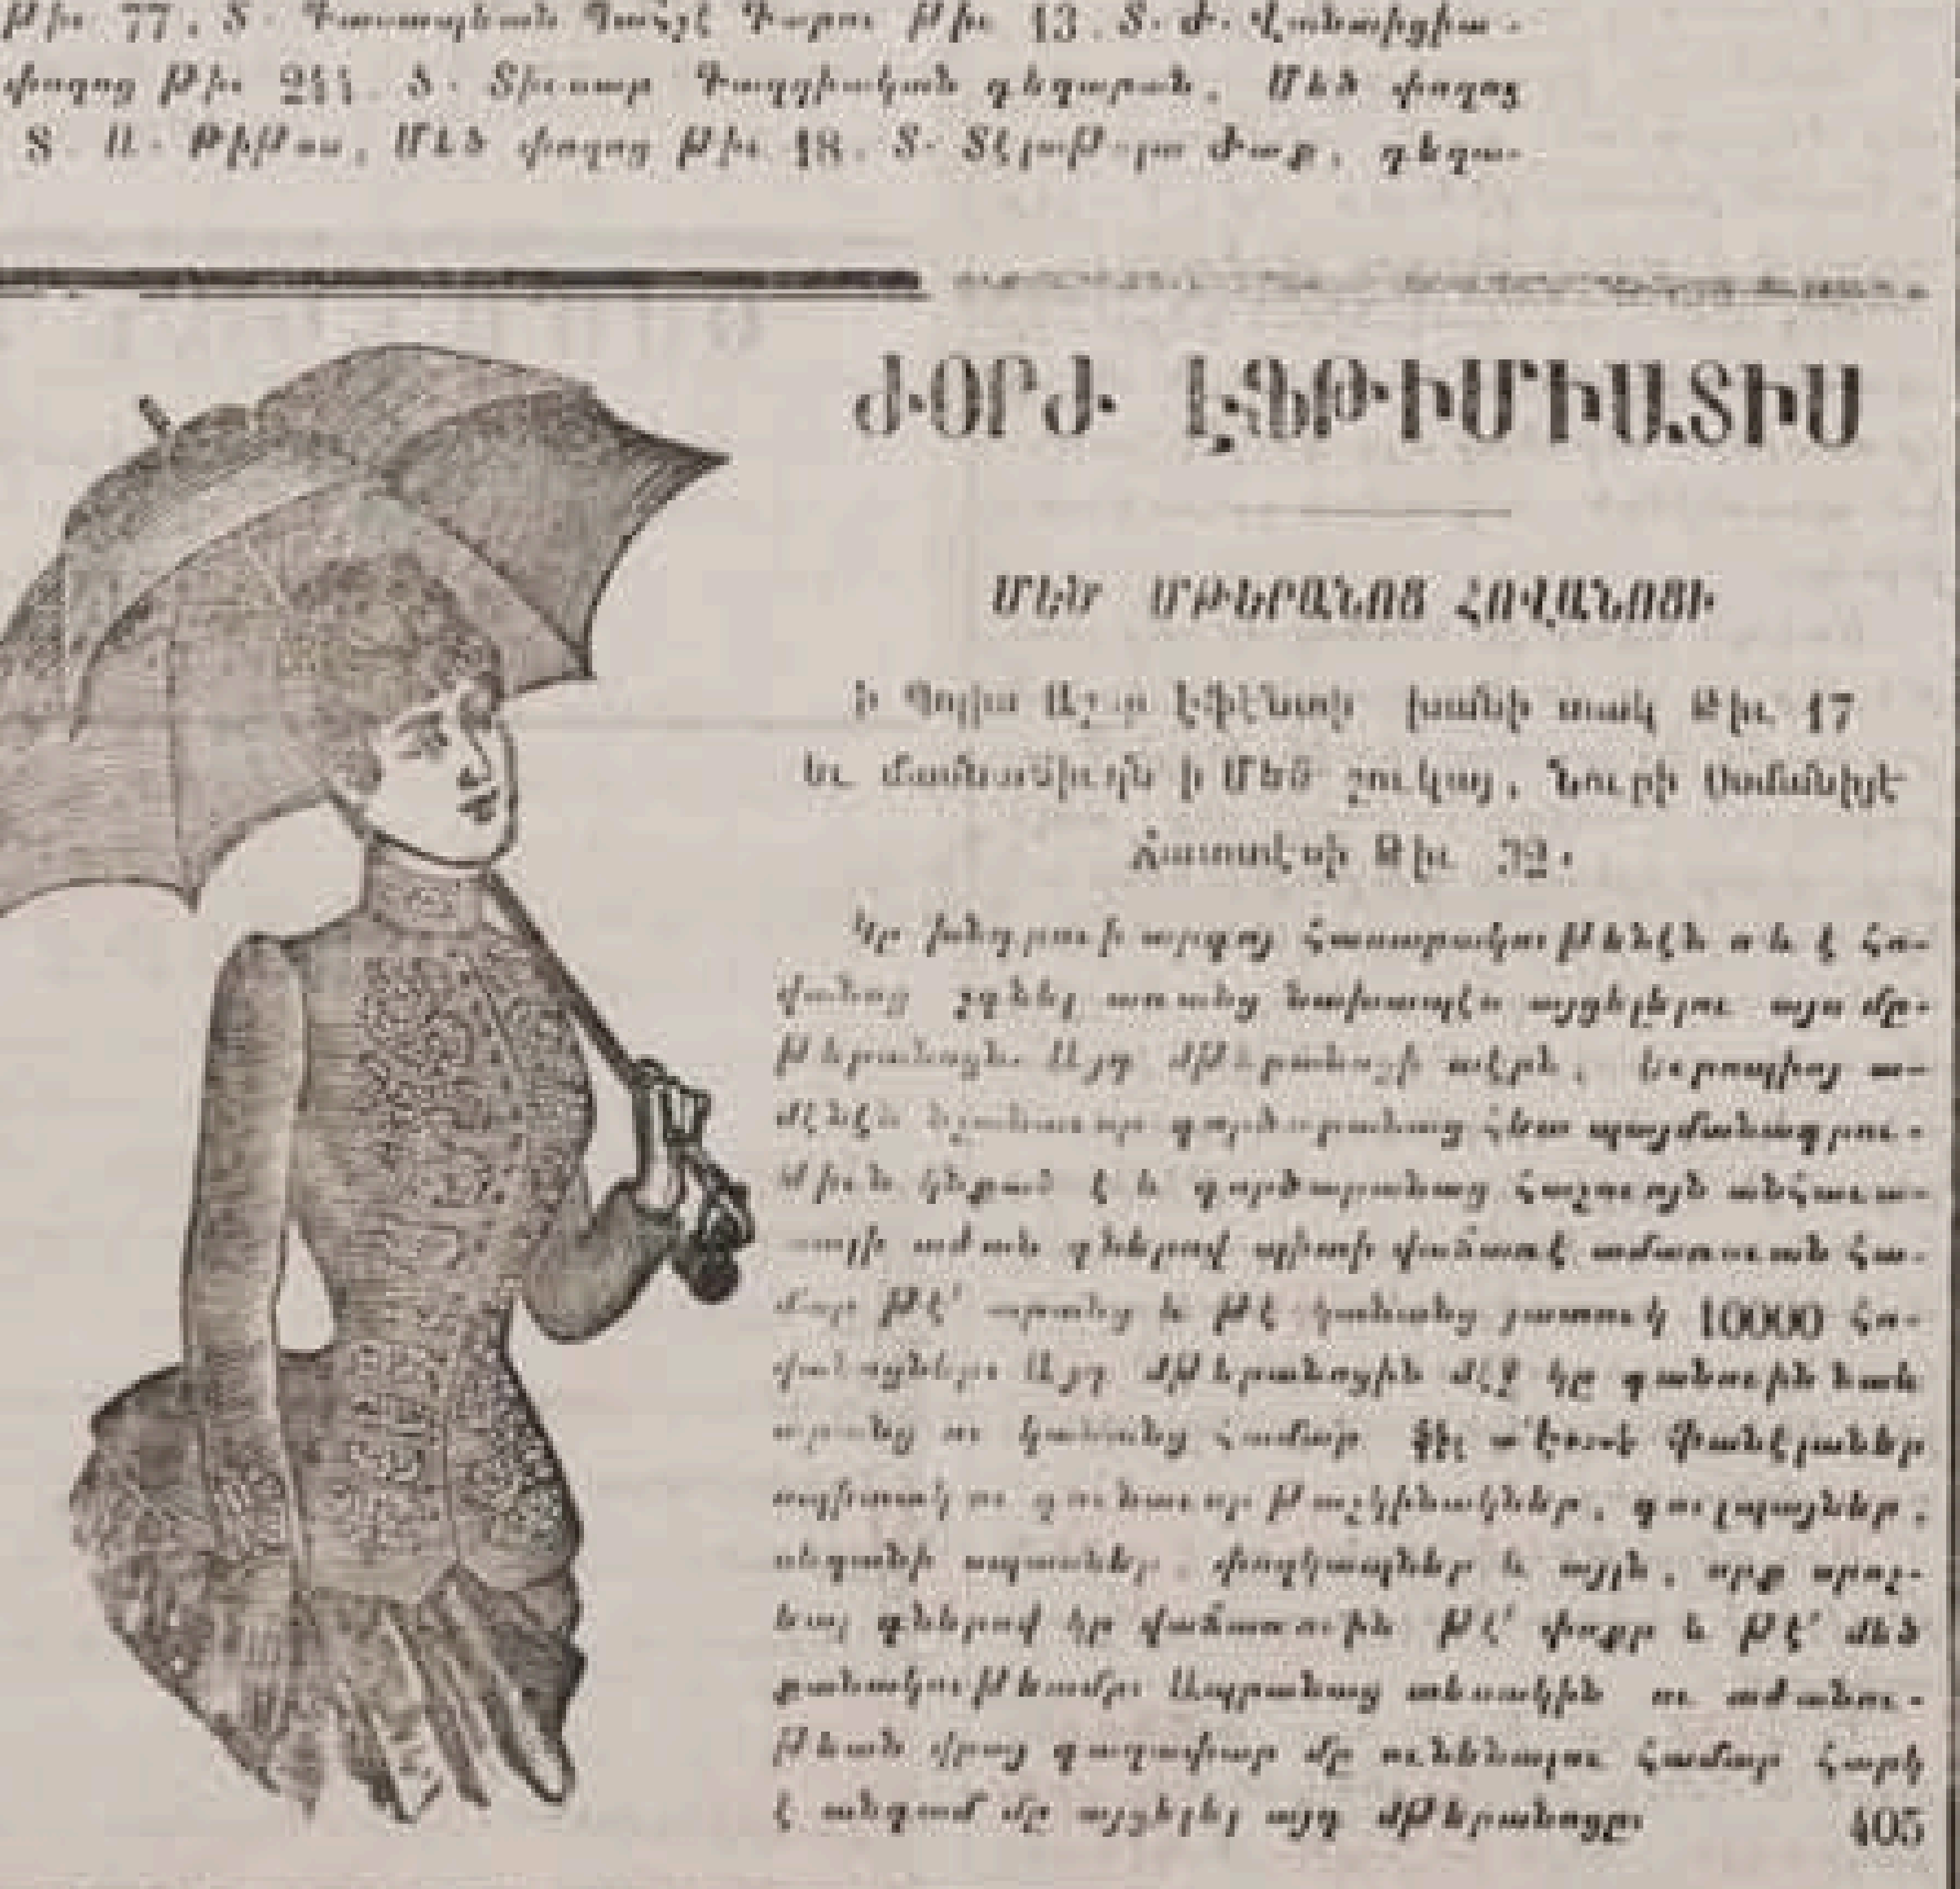 թիւ 77, Տ. Գասապեան Պահչէ Գաբու թիւ 13. Տ. Ժ.
փողոց թիւ 244. Տ. Տիւսար Գաղղիական գեղարան, Մեծ փողոց
8. Ա. Թիթաս, Մեծ փողոց թիւ 18. Տ. ժաք, գեղա-
ԺՕՐԺ ԷՖԹԻՄԻԱՏԻՍ
ՄԵԾ ՄԹԵՐԱՆՈՑ ՀՈՎԱՆՈՑԻ
ի Պոլիս էֆէնտի խանի տակ Թիւ 17
եւ մասնաճիւղն ի Մեծ շուկայ, Նուրի Օսմանիյէ
ճատտէսի Թիւ 32.
Կը խնդրուի յարգոյ հասարակութենէն որ և է հո-
վանոց չգնել առանց նախապէս այցելելու այս մը-
թերանոցն. Այդ մթերանոցի տէրն, Եւրոպիոյ ա-
մենէն նշանաւոր գործարանաց հետ պայմանագրու-
թիւն կնքած է և գործարանաց հաշուոյն անհաւա-
տալի աժան գներով պիտի վաճառէ ամառուան հա-
մար թէ՛ արանց և թէ կանանց յատուկ 10000 հո-
վանոցները Այդ մթերանոցին մէջ կը գտնուին նաև
արանց ու կանանց համար ֆիլ տ՛էքոս ֆանէլաներ
սպիտակ ու գունաւոր թաշկինակներ, գուլպայներ,
սեղանի սպասներ, փողկապներ և այլն, որք որոշ-
եալ գներով կը վաճառուին թէ՛ փոքր և թէ՛ մեծ
քանակութեամբ։ Ապրանաց տեսակին ու աժանու-
թեան վրայ գաղափար մը ունենալու համար հարկ
է անգամ մը այցելել այդ մթերանոցը։ 405